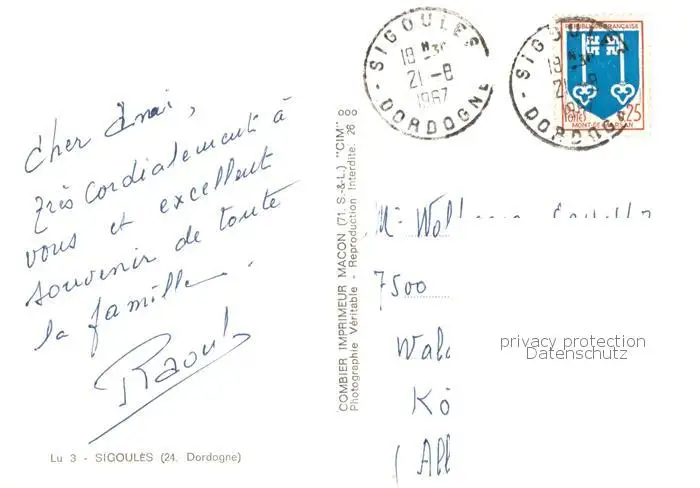 Cher Ami,
très cordialement à
vous et excellent
souvenir de toute
la famille.
Raoul
Lu 3 - SIGOULÈS (24. Dordogne)
COMBIER IMPRIMEUR MACON (71. S.-&-L.) "CIM"
Photographie Véritable - Reproduction Interdite. 26 8
SIGOULES
18 H 30
21 -8
1967
- DORDOGNE -
SIGOULES
18 H 30
21 -8
- DORDOGNE
REPUBLIQUE FRANÇAISE
0,25
POSTES
MONT-DE-MARSAN
Mr
7500
Wal
Kö
(All
privacy protection
Datenschutz